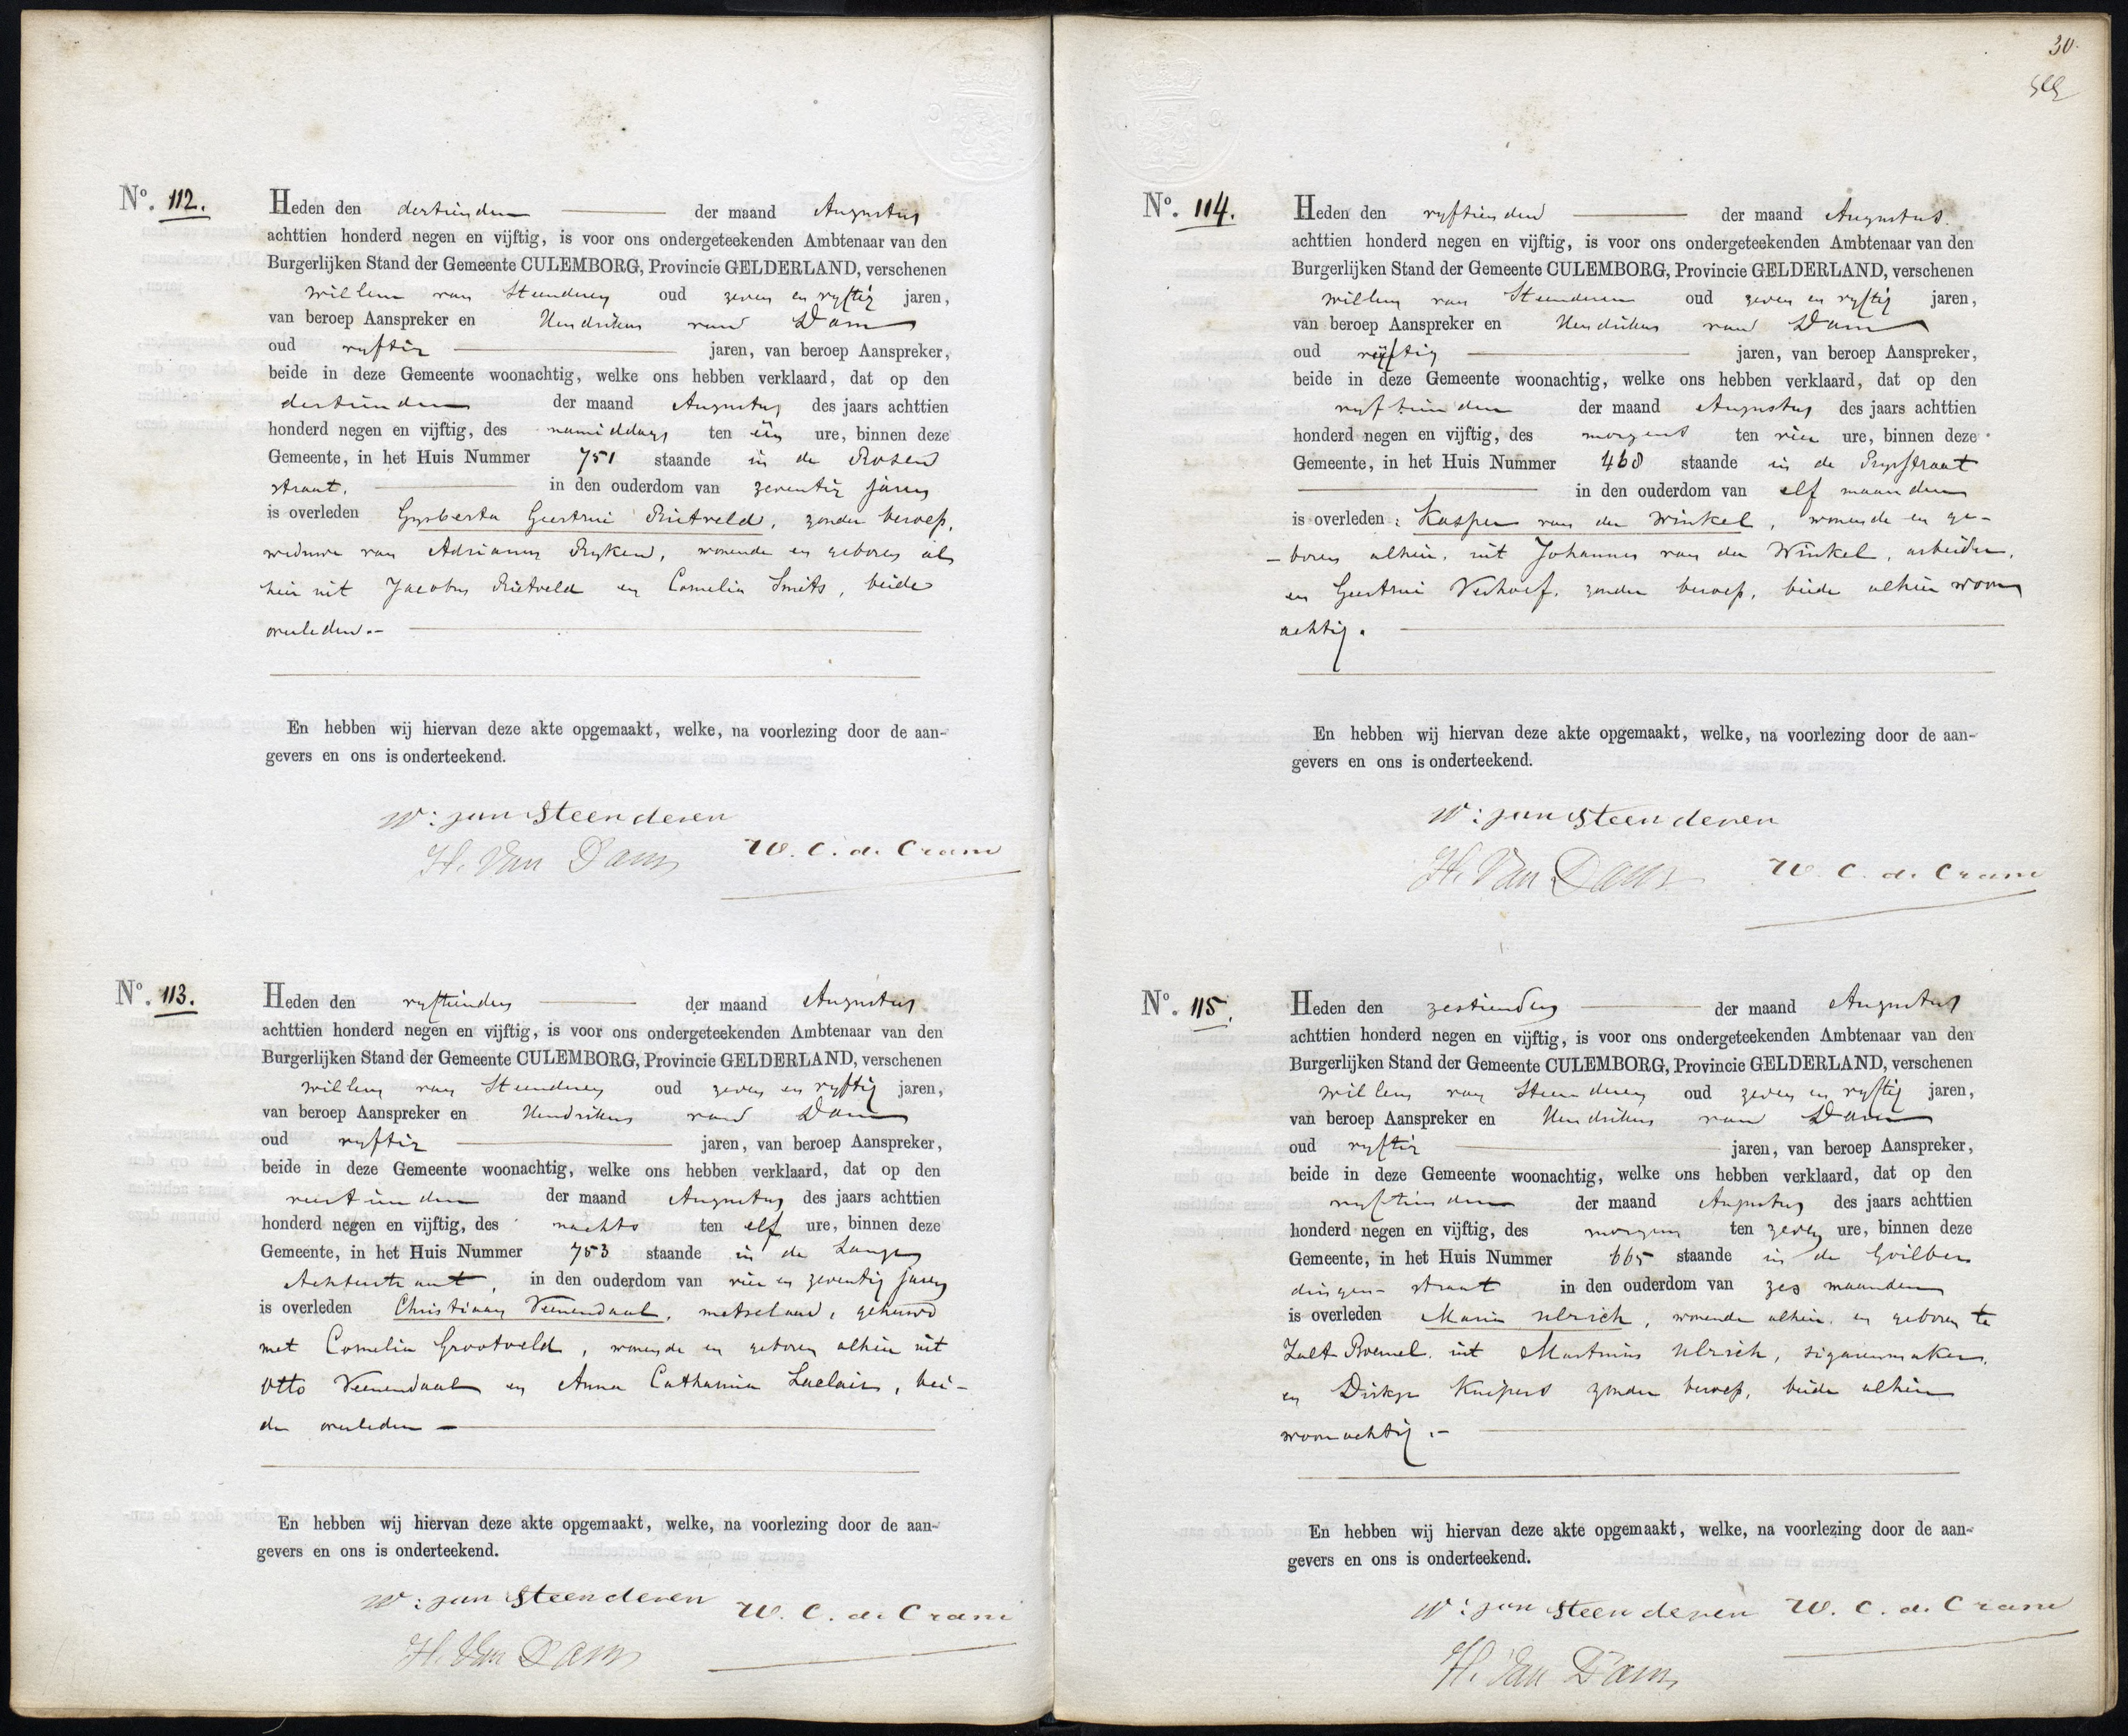 No. 112.
Heden den dertienden der maand Augustus
achttien honderd negen en vijftig, is voor ons ondergeteekenden Ambtenaar van den
Burgerlijken Stand der Gemeente CULEMBORG, Provincie GELDERLAND, verschenen
Willem van Steenderen oud zeven en vyftig jaren,
van beroep Aanspreker en Hendrikus van Dam
oud vyftig jaren, van beroep Aanspreker,
beide in deze Gemeente woonachtig, welke ons hebben verklaard, dat op den
dertienden der maand Augustus des jaars achttien
honderd negen en vijftig, des namiddags ten één ure, binnen deze
Gemeente, in het Huis Nummer 751 staande in de Rosen
straat, in den ouderdom van zeventig jaren
is overleden Gysberta Geertrui Rietveld, zonder beroep,
weduwe van Adrianus Ryken, wonende en geboren al
hier uit Jacobus Rietveld en Cornelia Smits, beide
overleden.-
En hebben wij hiervan deze akte opgemaakt, welke, na voorlezing door de aan-
gevers en ons is onderteekend.
W: van Steenderen
H. Van Dam W. C. d. Crane
No. 113.
Heden den vyftienden der maand Augustus
achttien honderd negen en vijftig, is voor ons ondergeteekenden Ambtenaar van den
Burgerlijken Stand der Gemeente CULEMBORG, Provincie GELDERLAND, verschenen
Willem van Steenderen oud zeven en vyftig jaren,
van beroep Aanspreker en Hendrikus van Dam
oud vyftig jaren, van beroep Aanspreker,
beide in deze Gemeente woonachtig, welke ons hebben verklaard, dat op den
veertienden der maand Augustus des jaars achttien
honderd negen en vijftig, des nachts ten elf ure, binnen deze
Gemeente, in het Huis Nummer 753 staande in de Lange
Achterstraat, in den ouderdom van vier en zeventig jaren
is overleden Christiaan Veenendaal, metselaar, gehuwd
met Cornelia Grootveld, wonende en geboren alhier uit
Otto Veenendaal en Anna Catharina Laclair, bei-
de overleden -
En hebben wij hiervan deze akte opgemaakt, welke, na voorlezing door de aan-
gevers en ons is onderteekend.
W: van Steenderen W. C. d. Crane
H. Van Dam
30.
No. 114.
Heden den vyftienden der maand Augustus.
achttien honderd negen en vijftig, is voor ons ondergeteekenden Ambtenaar van den
Burgerlijken Stand der Gemeente CULEMBORG, Provincie GELDERLAND, verschenen
Willem van Steenderen oud zeven en vyftig jaren,
van beroep Aanspreker en Hendrikus van Dam
oud vyftig jaren, van beroep Aanspreker,
beide in deze Gemeente woonachtig, welke ons hebben verklaard, dat op den
vyftienden der maand Augustus des jaars achttien
honderd negen en vijftig, des morgens ten vier ure, binnen deze
Gemeente, in het Huis Nummer 468 staande in de
in den ouderdom van elf maanden
is overleden: Kasper van der Winkel, wonende en ge-
-boren alhier, uit Johannes van der Winkel, arbeider,
en Geertrui Verhoef, zonder beroep, beide alhier woon
achtig.
En hebben wij hiervan deze akte opgemaakt, welke, na voorlezing door de aan-
gevers en ons is onderteekend.
W: van Steenderen
H. Van Dam W. C. d. Crane
No. 115.
Heden den zestienden der maand Augustus
achttien honderd negen en vijftig, is voor ons ondergeteekenden Ambtenaar van den
Burgerlijken Stand der Gemeente CULEMBORG, Provincie GELDERLAND, verschenen
Willem van Steenderen oud zeven en vyftig jaren,
van beroep Aanspreker en Hendrikus van Dam
oud vyftig jaren, van beroep Aanspreker,
beide in deze Gemeente woonachtig, welke ons hebben verklaard, dat op den
vyftienden der maand Augustus des jaars achttien
honderd negen en vijftig, des morgens ten zeven ure, binnen deze
Gemeente, in het Huis Nummer 665 staande in de Goilber
dingen- straat in den ouderdom van zes maanden
is overleden Maria Ulrich, wonende alhier, en geboren te
Zalt Boemel, uit Martinus Ulrich, sigarenmaker,
en Dirkje Kuipers zonder beroep, beide alhier
woonachtig.-
En hebben wij hiervan deze akte opgemaakt, welke, na voorlezing door de aan-
gevers en ons is onderteekend.
W: van Steenderen W. C. d. Crane
H. Van Dam